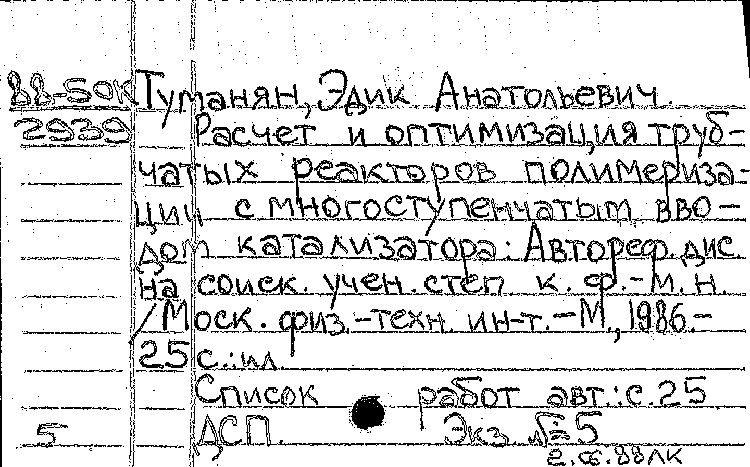 88-5 ОК Туманян, Эдик Анатольевич.
2939 Расчет и оптимизация труб-
чатых реакторов полимериза-
ции с многоступенчатым вво-
дом катализатора: Автореф. дис.
на соиск. учен. степ к. ф.-м. н.
/ Моск. физ.-техн. ин-т. — М., 1986.-
25 с.: ил.
Список работ авт.: с. 25
5 ДСП. Экз. № 5